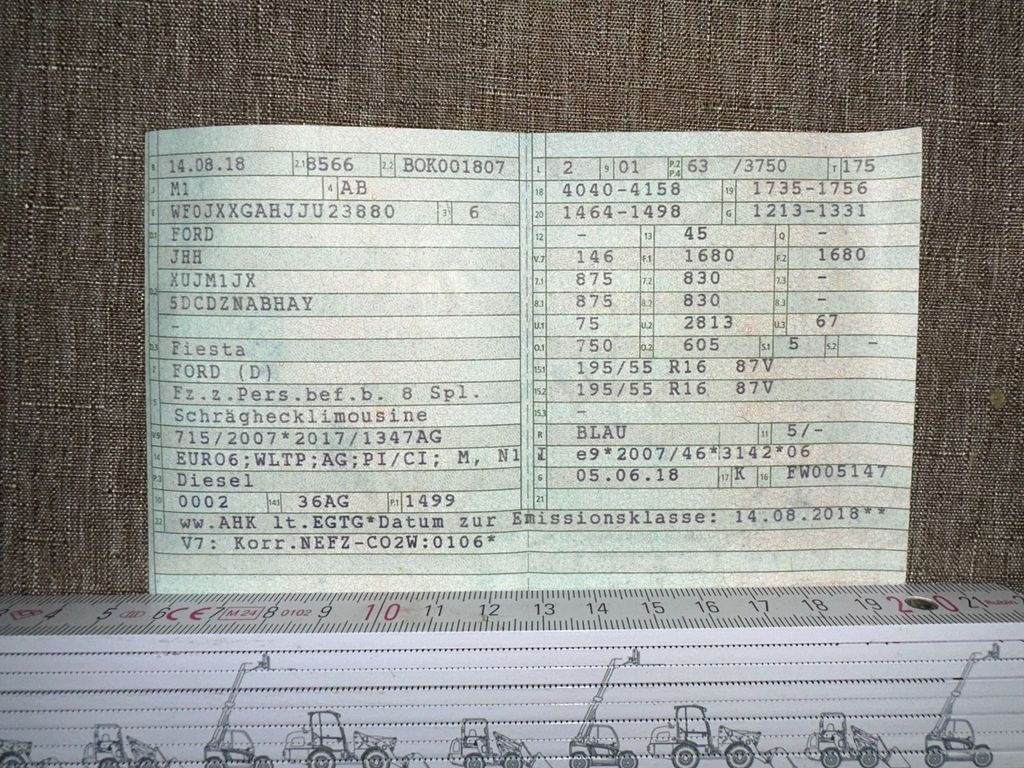 B 14.08.18 2.1 8566 2.2 BOK001807
J M1 4 AB
E WF0JXXGAHJJU23880 3 6
D.1 FORD
JHH
D.2 XUJM1JX
5DCDZNABHAY
-
D.3 Fiesta
2 FORD (D)
5 Fz.z.Pers.bef.b. 8 Spl.
Schräghecklimousine
V.9 715/2007*2017/1347AG
14 EURO6;WLTP;AG;PI/CI; M, N1 I
P.3 Diesel
10 0002 14.1 36AG P.1 1499
22 ww.AHK lt.EGTG*Datum zur Emissionsklasse: 14.08.2018**
V7: Korr.NEFZ-CO2W:0106*
L 2 9 01 P.2 P.4 63 /3750 T 175
18 4040-4158 19 1735-1756
20 1464-1498 G 1213-1331
12 - 13 45 Q -
V.7 146 F.1 1680 F.2 1680
7.1 875 7.2 830 7.3 -
8.1 875 8.2 830 8.3 -
U.1 75 U.2 2813 U.3 67
O.1 750 O.2 605 S.1 5 S.2 -
15.1 195/55 R16 87V
15.2 195/55 R16 87V
15.3 -
R BLAU 11 5/-
e9*2007/46*3142*06
6 05.06.18 17 K 16 FW005147
21
4 5 6 CE 7 M24 8 0102 9 10 11 12 13 14 15 16 17 18 19 20 21